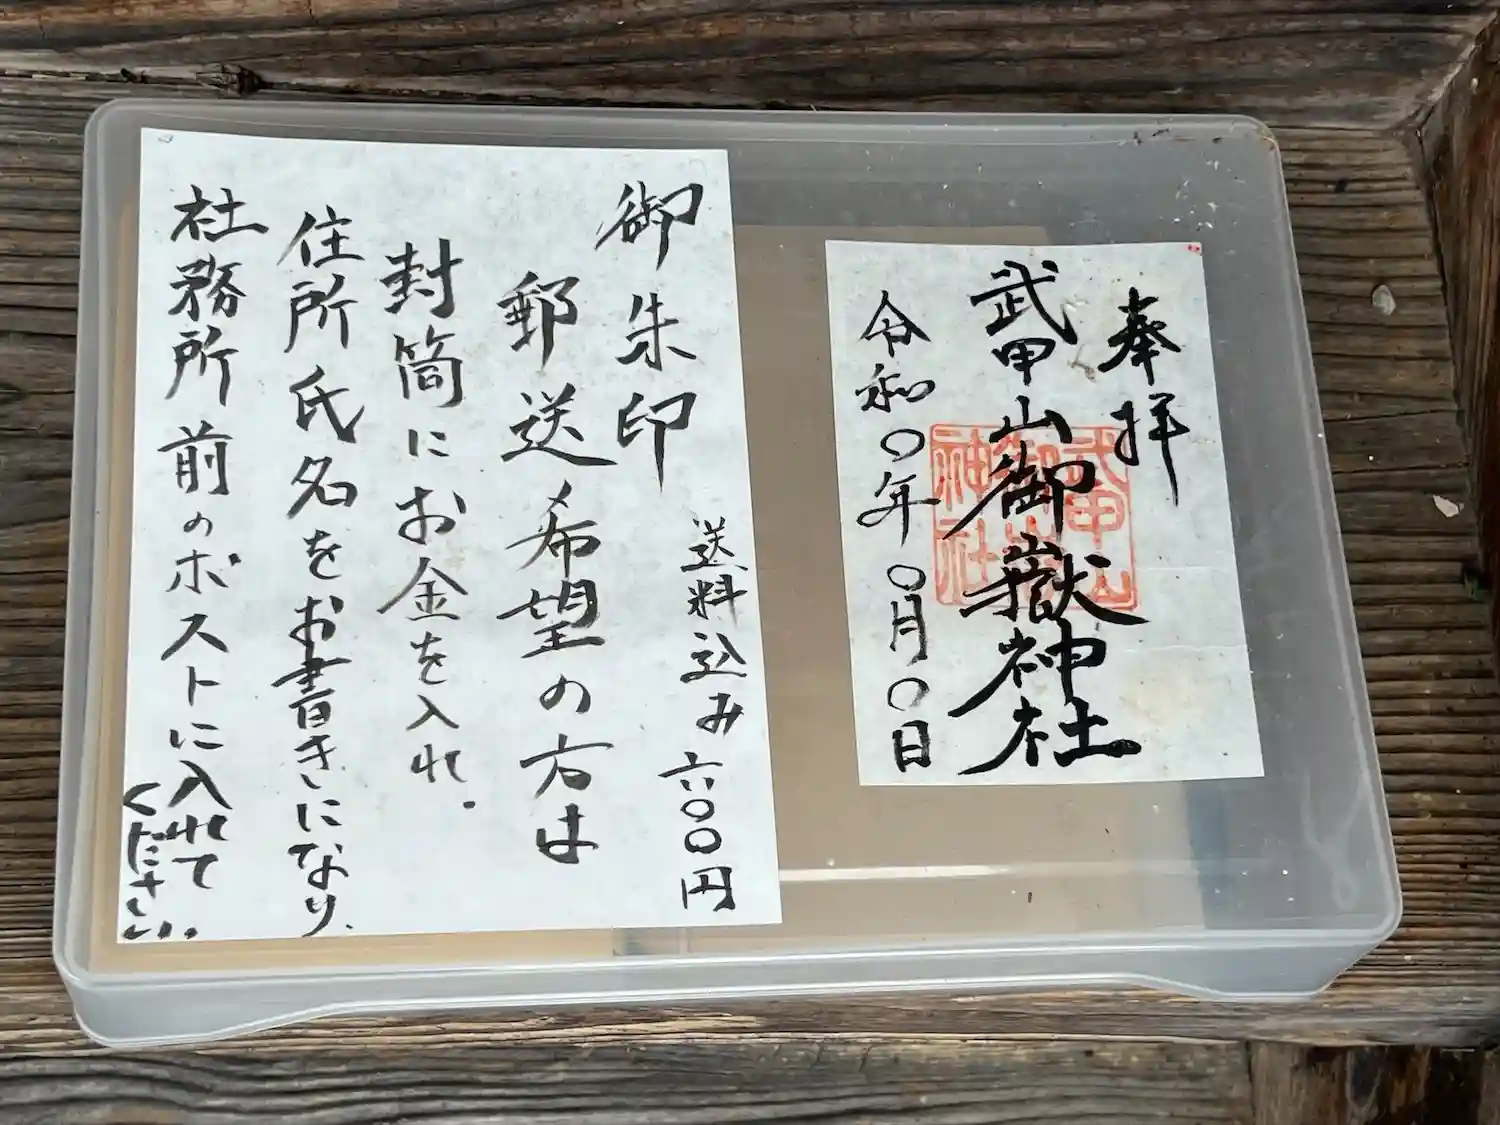 奉拝
武甲山御嶽神社
令和〇年〇月〇日
武甲山
御嶽
神社
御朱印 送料込み 六〇〇円
郵送希望の方は
封筒にお金を入れ.
住所氏名をお書きになり.
社務所前のポストに入れて
ください..